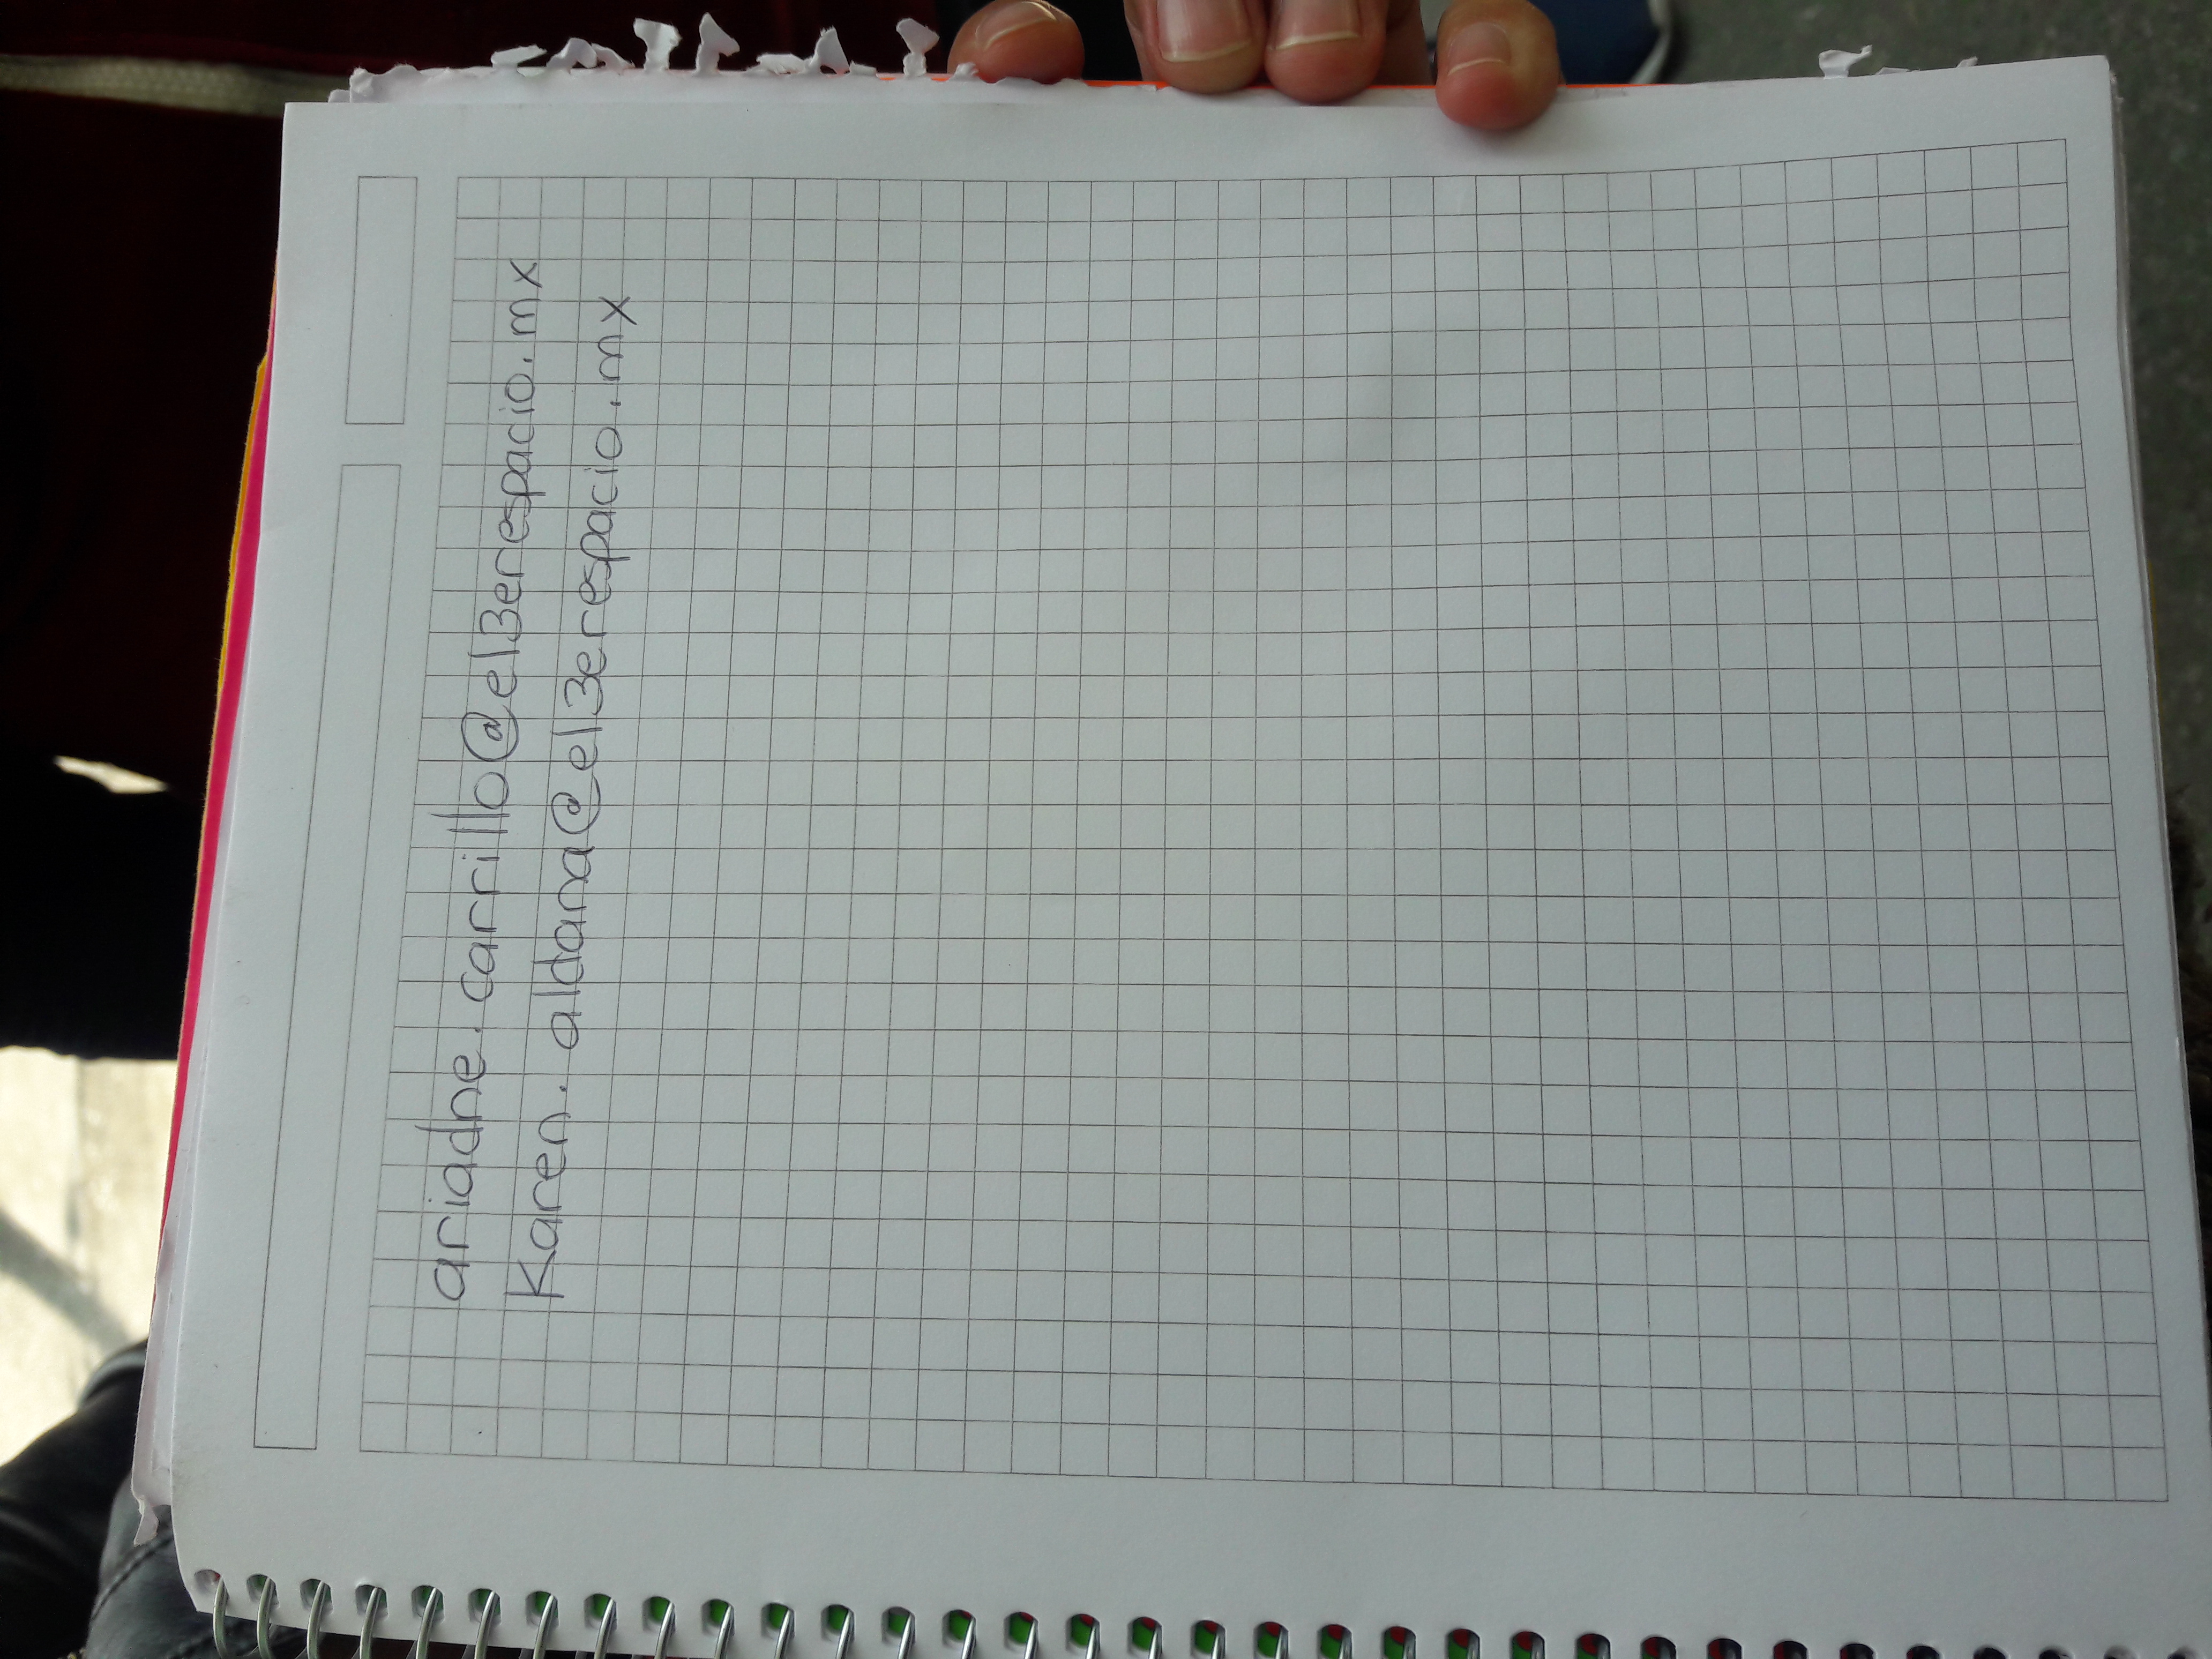 ariadne.carrillo@el3erespacio.mx
Karen.aldana@el3erespacio.mx